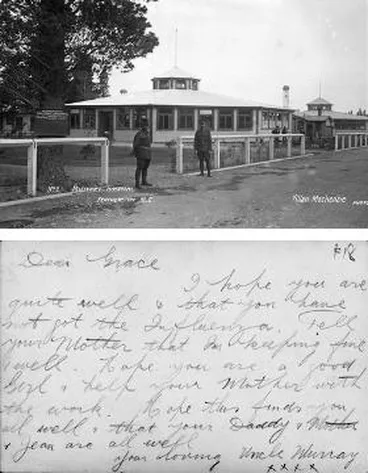 No 2 Military Hospital
Featherston N.Z.
Allan MacKenzie
Dear Grace
I hope you are
quite well & that you have
not got the Influenza. Tell
your Mother that Im keeping fine
& well. Hope you are a good
Girl & help your Mother with
the work. Hope this finds you
all well & that your Daddy & Mother
& Jean are all well
your loving Uncle Murray
x x x x